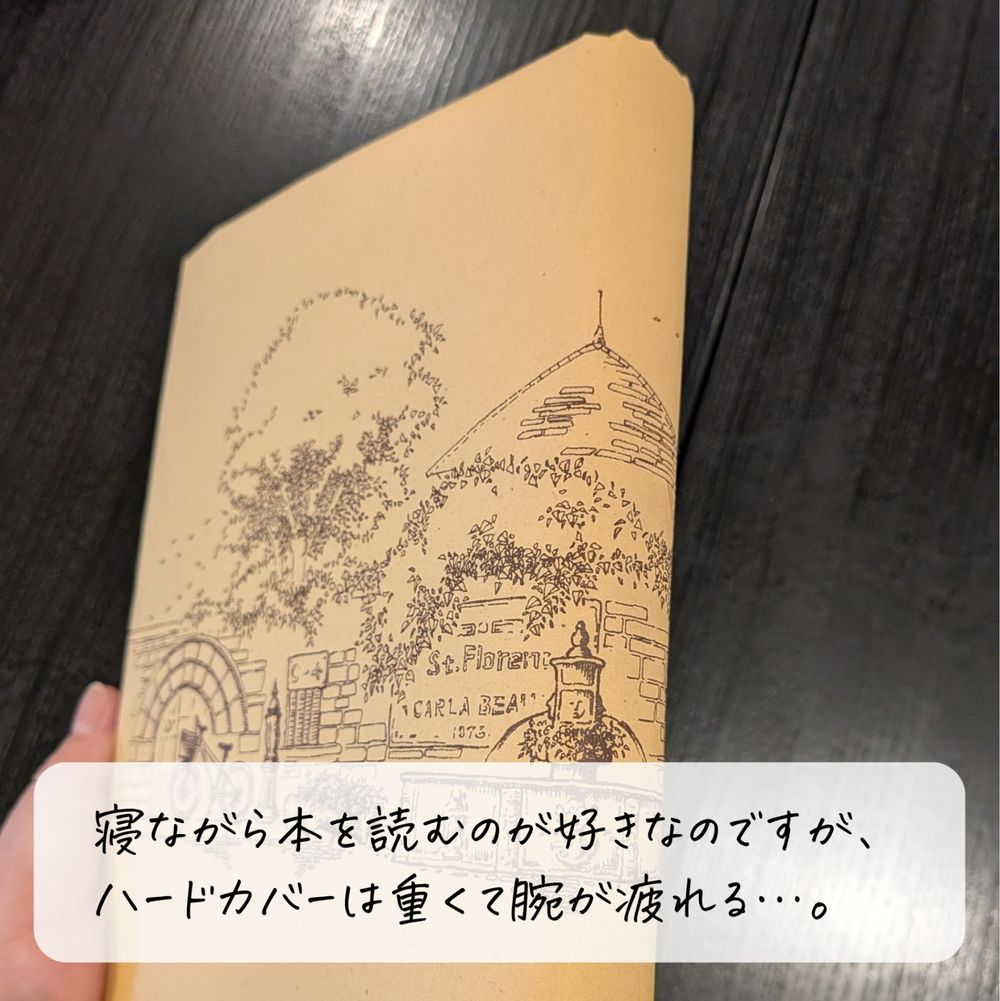 St. Floren
CARLA BEA
1873.
寝ながら本を読むのが好きなのですが、
ハードカバーは重くて腕が疲れる…。